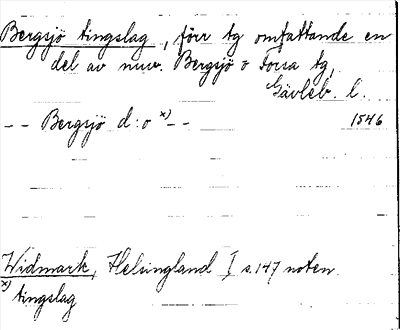 Bergsjö tingslag, förr tg omfattande en
del av nuv. Bergsjö o Forsa tg,
Gävleb. l.
-- Bergsjö d:o x) -- 1546
Widmark, Helsingland I s. 147 noten.
x) tingslag